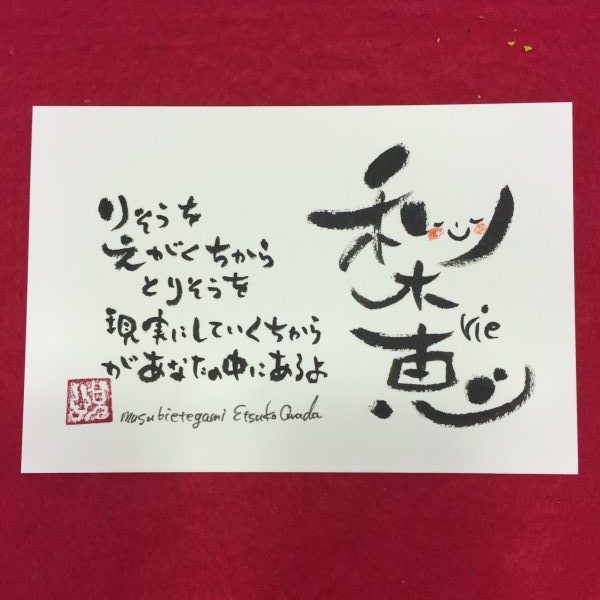 梨恵
rie
りそうを
えがくちから
とりそうを
現実にしていくちから
があなたの中にあるよ
musubietegami Etsuko